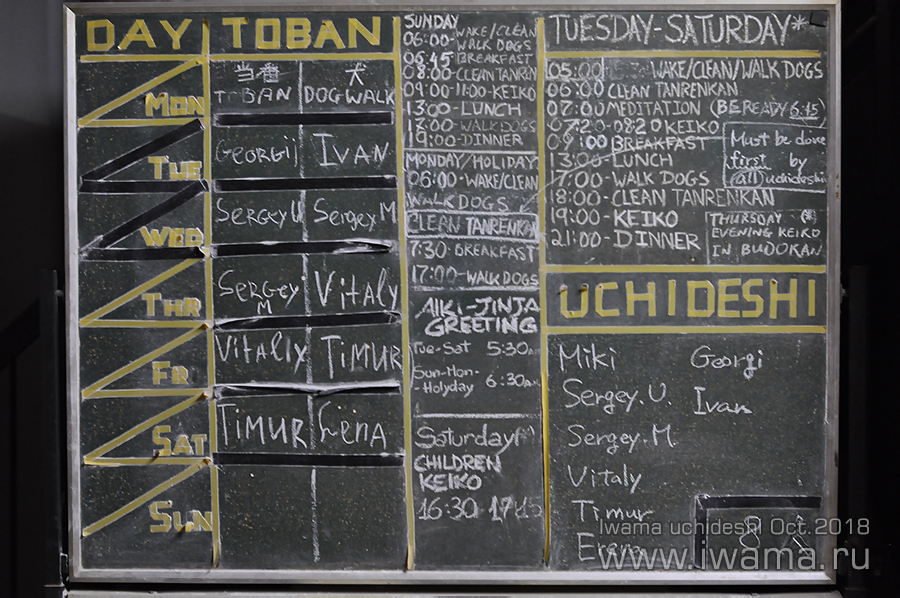 DAY TOBAN
当番 犬
MON TOBAN DOGWALK
TUE GEORGIJ IVAN
WED Sergey U Sergey.M
THR Sergey M Vitaliy
FR Vitaliy TIMUR
SAT TIMUR
SUN
SUNDAY
06:00- WAKE/CLEAN
WALK DOGS
06:45 BREAKFAST
08:00 CLEAN TANREN
09:00-11:00-KEIKO
13:00- LUNCH
17:00- WALK DOGS
19:00- DINNER
MONDAY/HOLIDAY
06:00- WAKE/CLEAN
WALK DOGS
CLEAN TANRENKAN
7:30- BREAKFAST
17:00- WALK DOGS
AIKI-JINJA
GREETING
Tue-Sat 5:30am
Sun-Mon-
Holyday 6:30am
Saturday(*)
CHILDREN
KEIKO
16:30 17:15
TUESDAY-SATURDAY*
05:00 WAKE/CLEAN/WALK DOGS
06:00 CLEAN TANRENKAN
07:00 MEDITATION (BE READY 6:45)
07:20-08:20 KEIKO
09:00 BREAKFAST
13:00 LUNCH
17:00- WALK DOGS
18:00- CLEAN TANRENKAN
19:00- KEIKO
21:00- DINNER
Must be done
first by
(all) uchideshi
THURSDAY (*)
EVENING KEIKO
IN BUDOKAN
UCHIDESHI
Miki Georgi
Sergey.U. Ivan
Sergey.M.
Vitaly
Timur
8
Iwama uchideshi Oct.2018
www.iwama.ru